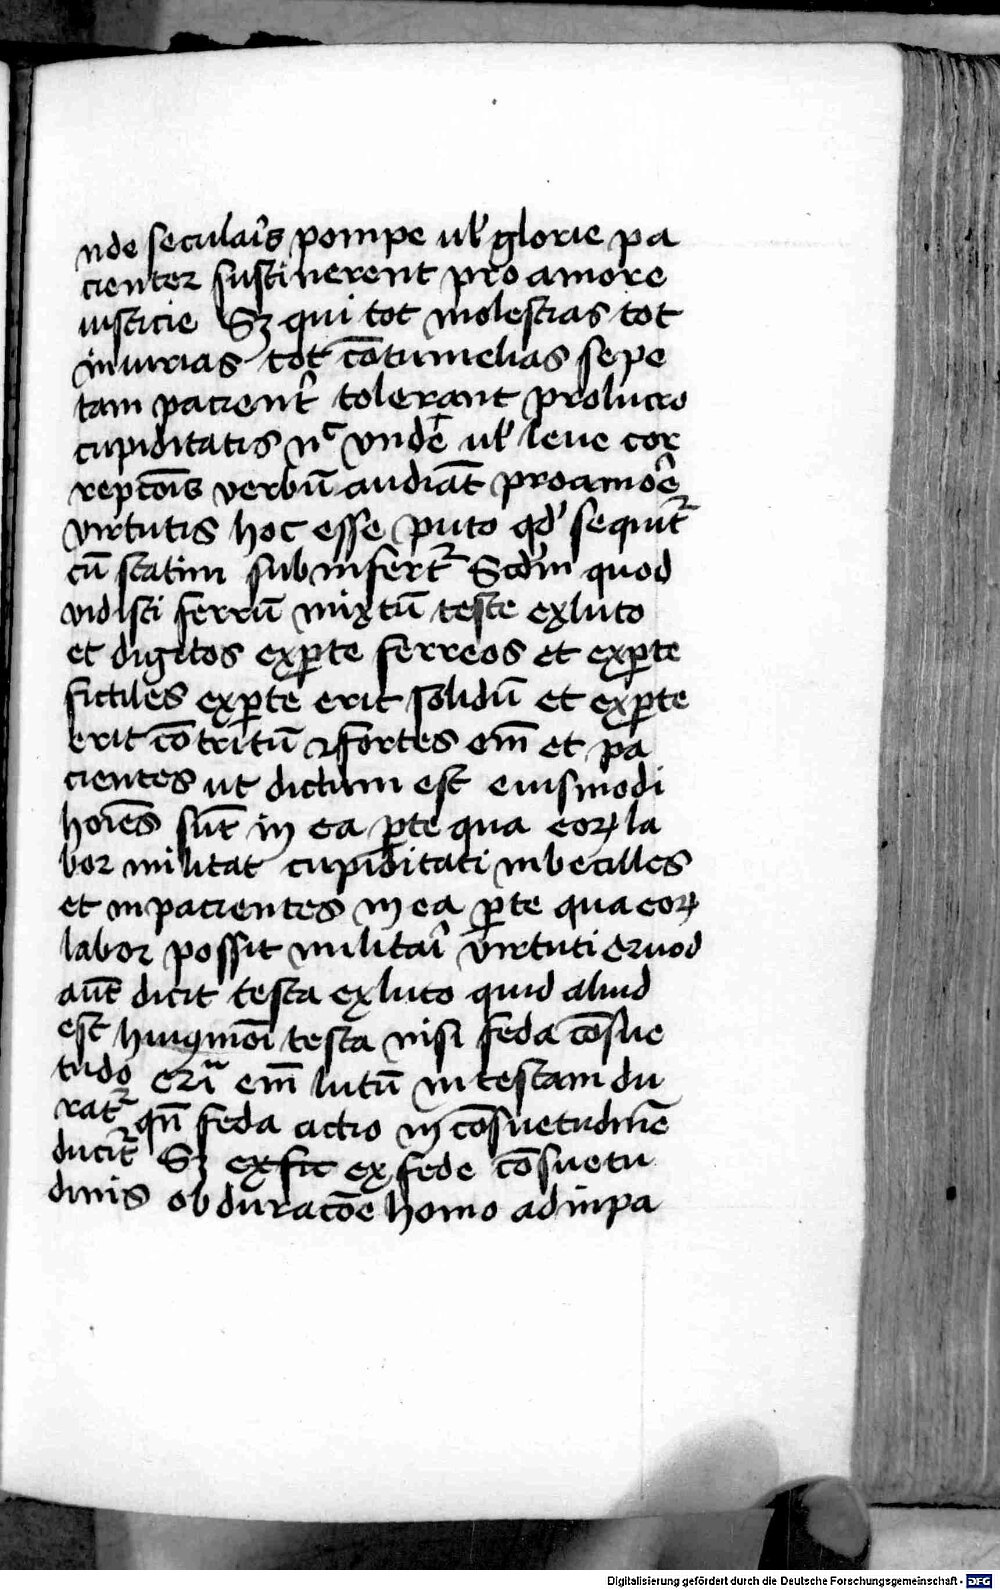 nde seculaı̉s pompe ul̓ glorie pa
cienter sustinerent pro amore
iusticie Sꝫ qui tot molestias tot
iniurias tot cōtumelias sepe
tam pacient̉ tolerant pro lucro
cupiditatis nͨ vnde̅ ul̓ leue cor
repcōis verbū audiāt pro amoẻ
virtutis hoc esse puto qd̓ sequit᷑
cū statim subinfert᷑ Scd̓m quod
vidisti ferrū mixtū teste ex luto
et digitos ex ꝑte ferreos et ex ꝑte
fictiles ex ꝑte erit solidū et ex ꝑte
erit cōtritū fortes em̄ et pa
cientes ut dictum est eiusmodi
hoīes sūt in ea ꝑte qua eoꝝ la
bor militat cupiditati inbecilles
et inpacientes in ea ꝑte qua eoꝝ
labor possit militaı̉ virtuti
aūt dicit testa ex luto quid aliud
est huiꝯmōi testa nisi feda cōsue
tudo em̄ lutū in testam du
rat᷑ qn̄ feda actio in cōsuetudinē
ducit᷑ Sꝫ ex fic ex fede cōsuetu
dinis obduracōe homo ad inpa
Digitalisierung gefördert durch die Deutsche Forschungsgemeinschaft - DFG